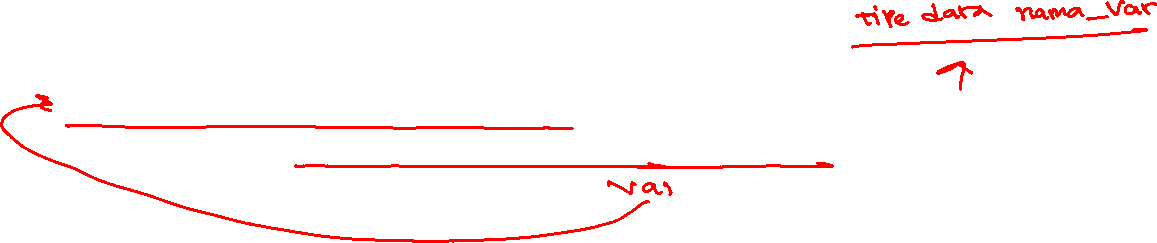 tipe data nama_var
var